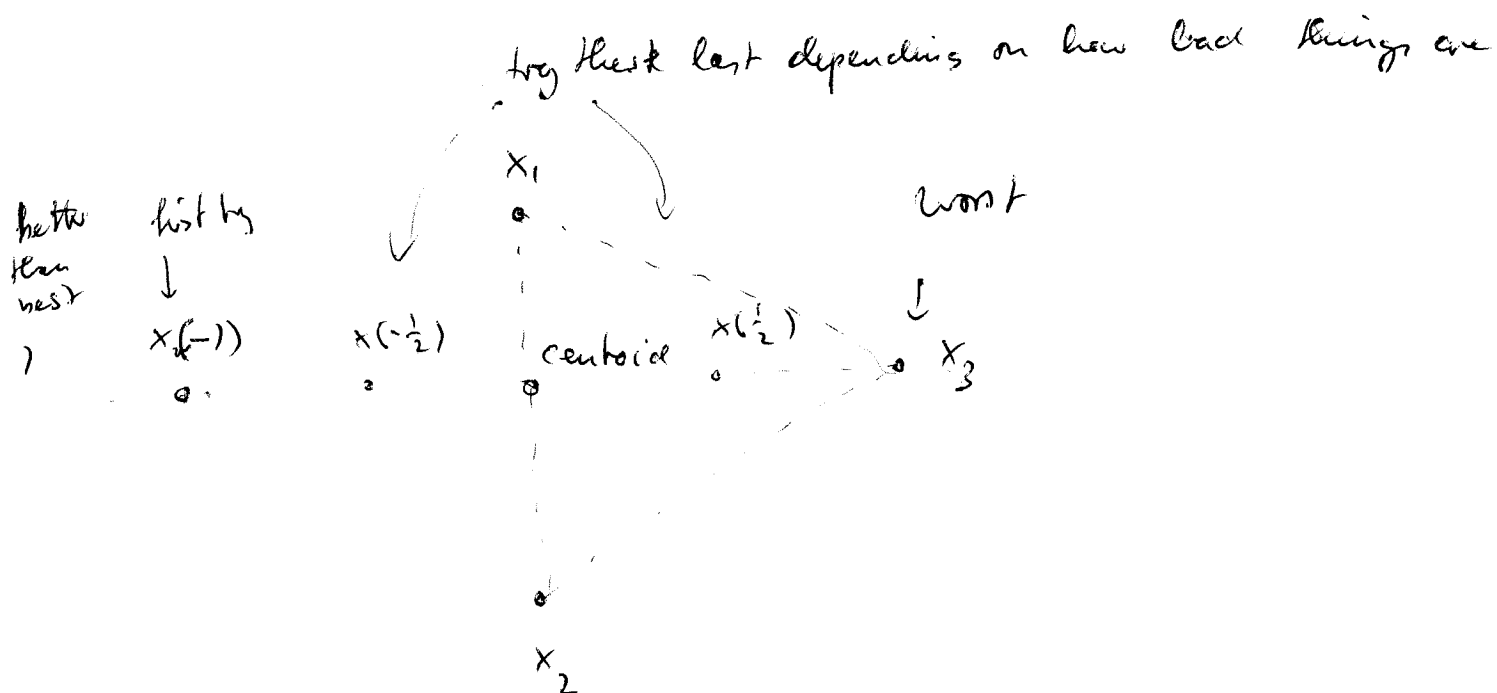 try these last depending on how bad things are
x₁
worst
better than best
first try
x(-1)
x(-½)
centroid
x(½)
x₃
x₂